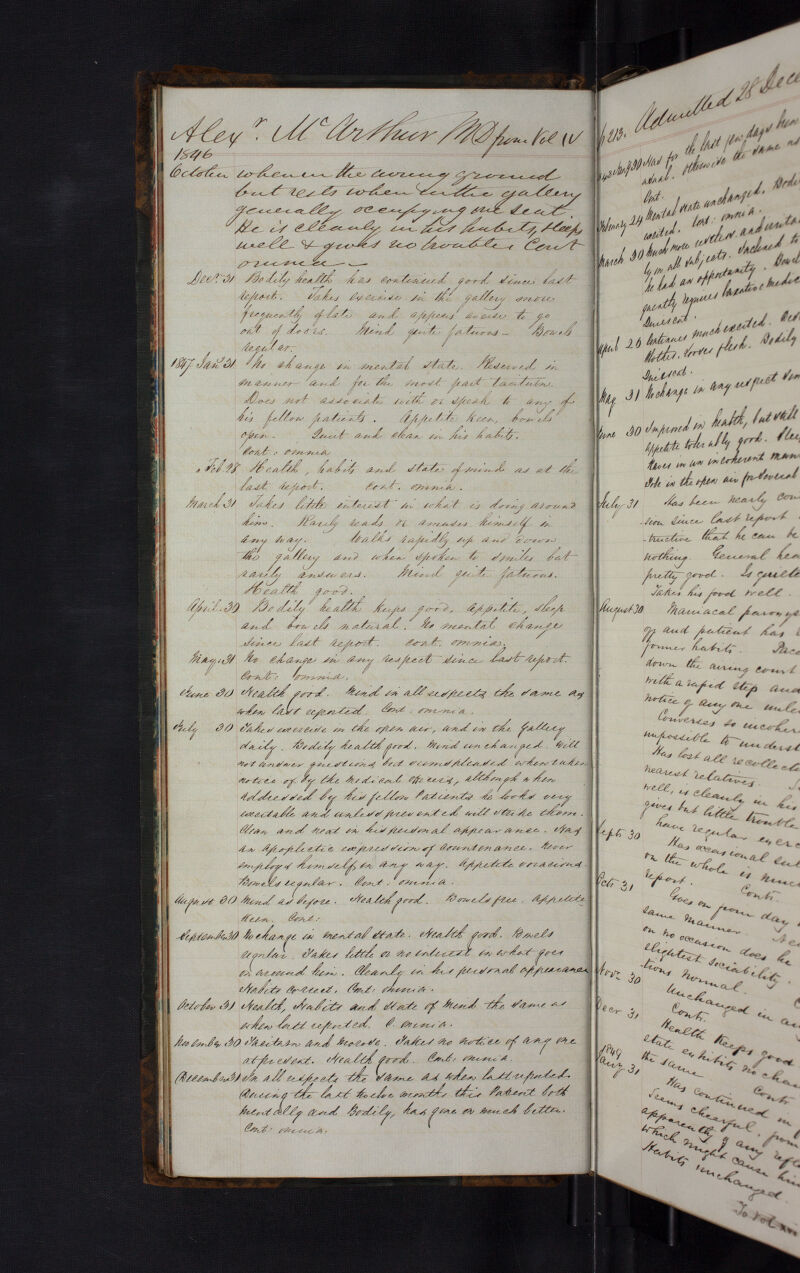 Alexr. McArthur MD from Vol IV
1846
October when in the airing ground
but rests when in the gallery
generally occupying one seat.
He is cleanly in his habits, sleeps
well & gives no trouble. Cont
omnia
Decr. 31 Bodily health has continued good since last
report. Takes exercise in the gallery more
frequently of late and appears averse to go
out of doors. Mind quite fatuous - Bowels
regular.
1847 Jany 31 No change in mental state. Reserved in
manner and for the most part taciturn.
Does not associate with or speak to any of
his fellow patients. Appetite keen, bowels
open. Quiet and clean in his habits.
Cont: omnia
Feb 28 Health, habits and state of mind as at the
last report. Cont. omnia.
March 31 Takes little interest in what is doing around
him. Rarely reads or amuses himself in
any way. Walks rapidly up and down
the gallery and when spoken to smiles but
rarely answers. Mind quite fatuous.
Health good.
April 30 Bodily health keeps good, appetite, sleep
and bowels natural. No mental change
since last report. Cont. omnia.
May 31 No change in any respect since last report.
Cont: omnia.
June 30 Health good. Mind in all respects the same as
when last reported. Cont. omnia.
July 30 Takes exercise in the open air, and in the Gallery
daily. Bodily health good. Mind unchanged. Will
not answer questions but seems pleased when taken
notice of by the medical officers, although when
addressed by his fellow Patients he looks very
excitable and unless prevented will strike them.
Clean and neat in his personal appearance. Has
an apoplectic expression of countenance. Never
employs himself in any way. Appetite voracious
Bowels regular. Cont: omnia.
August 30 Mind as before. Health good. Bowels free. Appetite
keen. Cont:
September 30 No change in mental state. Health good. Bowels
regular. Takes little or no interest in what goes
on around him. Cleanly in his personal appearance
Habits correct. Cont: omnia.
October 31 Health, Habits and state of Mind the same as
when last reported. C. omnia.
November 30 Taciturn and morose. Takes no notice of any one
at present. Health good. Cont. omnia
December 31 In all respects the same as when last reported.
During the last twelve months this Patient both
mentally and Bodily, has gone on much better.
Cont: omnia.
p 213. Admitted 28 Dece
30 Has for the last few days been
otherwise the same as
Cont.
February 24 Mental state unchanged. Bodi
excited. Cont: omnia.
March 30 Much more restless and irrita
on all subjects. Inclined to
he had an opportunity. Bowel
greatly requires laxative medic
April 26 Continues much excited.
flesh. Bodily
May 31 No change in any respect
June 30 Improved in health, but still
Appetite tolerably good. Slee
Raves in an incoherent man
in the open air for several
July 31 Has been nearly con
since last report.
-tructive that he can be
nothing. General hea
pretty good. Is
Takes his food well.
August 30 Maniacal paroxys
off and patient has
former habits.
down the airing court
with a rapid step and
notice of any one unle
Converses so incoher
impossible to underst
Has lost all recollecti
nearest relatives.
well, is cleanly in his
gives but little trouble
Septr 30 Has occasional
on the whole is much
report. Cont.
Octr 31 Goes on from day
same manner
on no occasion does he
slightest sociability.
-tions normal.
Novr 30 Unchanged in an
Cont.
Decr 31 Health keeps good
state exhibits no chan
the same Cont.
1849
Jany 31 Has continued in
Seems cheerful, from
apparently of any
which might cause him
Habits unchanged.
To Vol